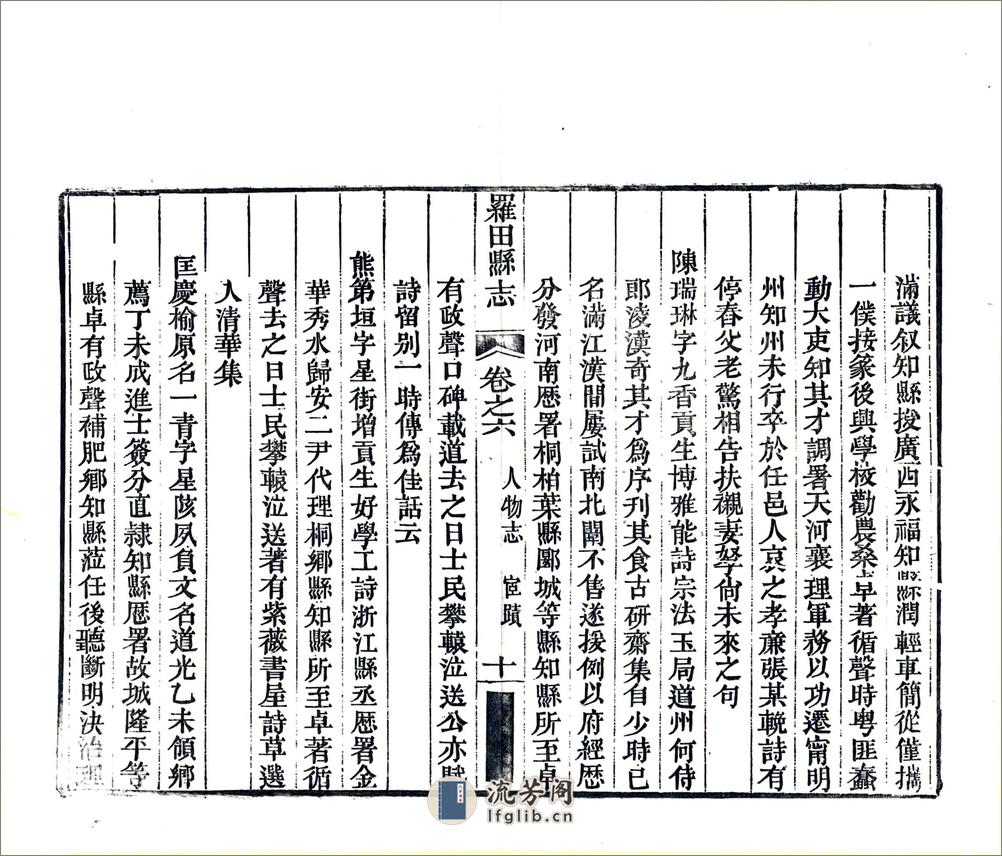 滿議叙知縣授廣西永福知縣潤輕車簡從僅攜
一僕接篆後興學校勸農桑卓著循聲時粤匪蠢
動大吏知其才調署天河襄理軍務以功遷甯明
州知州未行卒於任邑人哀之孝亷張某輓詩有
停春父老驚相告扶櫬妻孥尙未來之句
陳瑞琳字九香貢生博雅能詩宗法玉局道州何侍
郎淩漢奇其才爲序刊其食古研齋集自少時已
名滿江漢間屢試南北闈不售遂援例以府經歴
分發河南歴署桐柏葉縣郾城等縣知縣所至卓
羅田縣志
卷之六
人物志
宦蹟
十
有政聲口碑載道去之日士民攀轅泣送公亦賦
詩留别一時傳爲佳話云
熊第垣字星街增貢生好學工詩浙江縣丞歴署金
華秀水歸安二尹代理桐鄉縣知縣所至卓著循
聲去之日士民攀轅泣送著有紫薇書屋詩草選
入清華集
匡慶榆原名一青字星陔夙負文名道光乙未領鄉
薦丁未成進士簽分直隸知縣歴署故城隆平等
縣卓有政聲補肥鄉知縣蒞任後聽斷明決治理
流芳阁
lfglib.cn